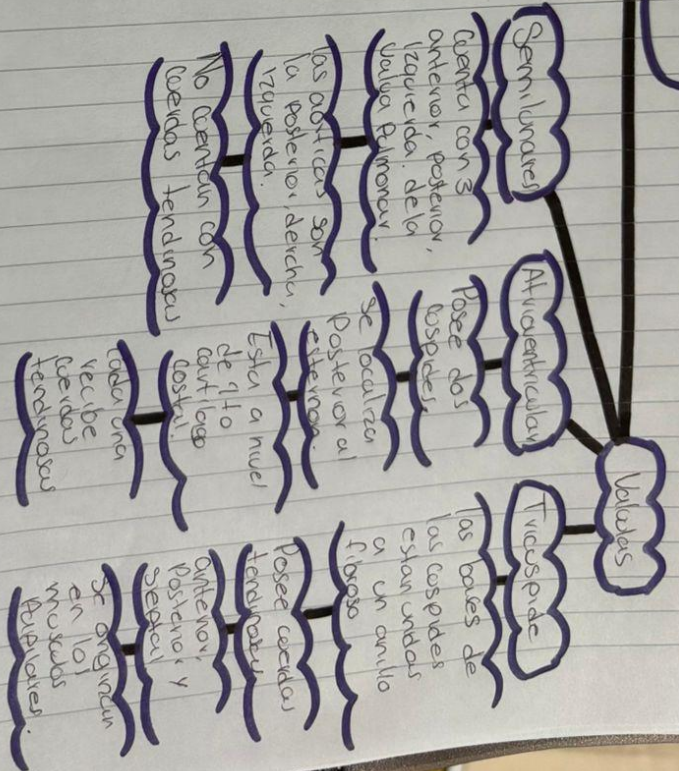 Valvulas
Semilunares
Cuenta con 3
anterior, posterior,
izquierda de la
valva Pulmonar.
las aórticas son
la posterior, derecha,
izquierda.
No cuentan con
cuerdas tendinosas
Atrioventricular
Posee dos
cuspides.
se localiza
Posterior al
esternon.
Esta a nivel
de 4to
cartilago
costal.
Cada una
recibe
cuerdas
tendinosas
Tricuspide
las bases de
las cuspides
estan unidas
a un anillo
fibroso
Posee cuerdas
tendinosas
anterior,
Posterior y
septal
se originan
en los
musculos
Papilares.